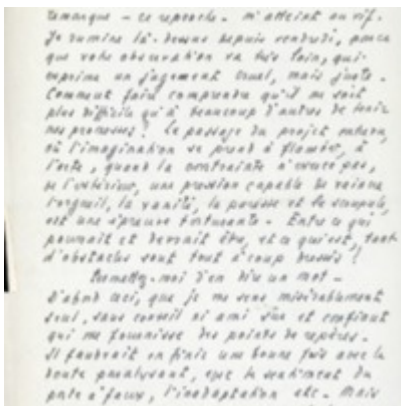 remarque - ce reproche - m'atteint au vif.
Je rumine là-dessus depuis vendredi, parce
que votre observation va très loin, qui
exprime un jugement cruel, mais juste.
Comment faire comprendre qu'il me soit
plus difficile qu'à beaucoup d'autres de tenir
mes promesses ? Le passage du projet mûri,
où l'imagination se prend à flamber, à
l'acte, quand la contrainte n'exerce pas,
de l'extérieur, une pression capable de vaincre
l'orgueil, la vanité, la paresse et le scrupule,
est une épreuve torturante - Entre ce qui
pourrait et devrait être, et ce qui est, tant
d'obstacles sont tout à coup dressés !
Permettez-moi d'en dire un mot -
D'abord ceci, que je me sens misérablement
seul, sans conseil ni ami sûr et confiant
qui me fournisse des points de repères.
Il faudrait en finir une bonne fois avec le
doute paralysant, avec le sentiment du
porte à faux, l'inadaptation etc. Mais